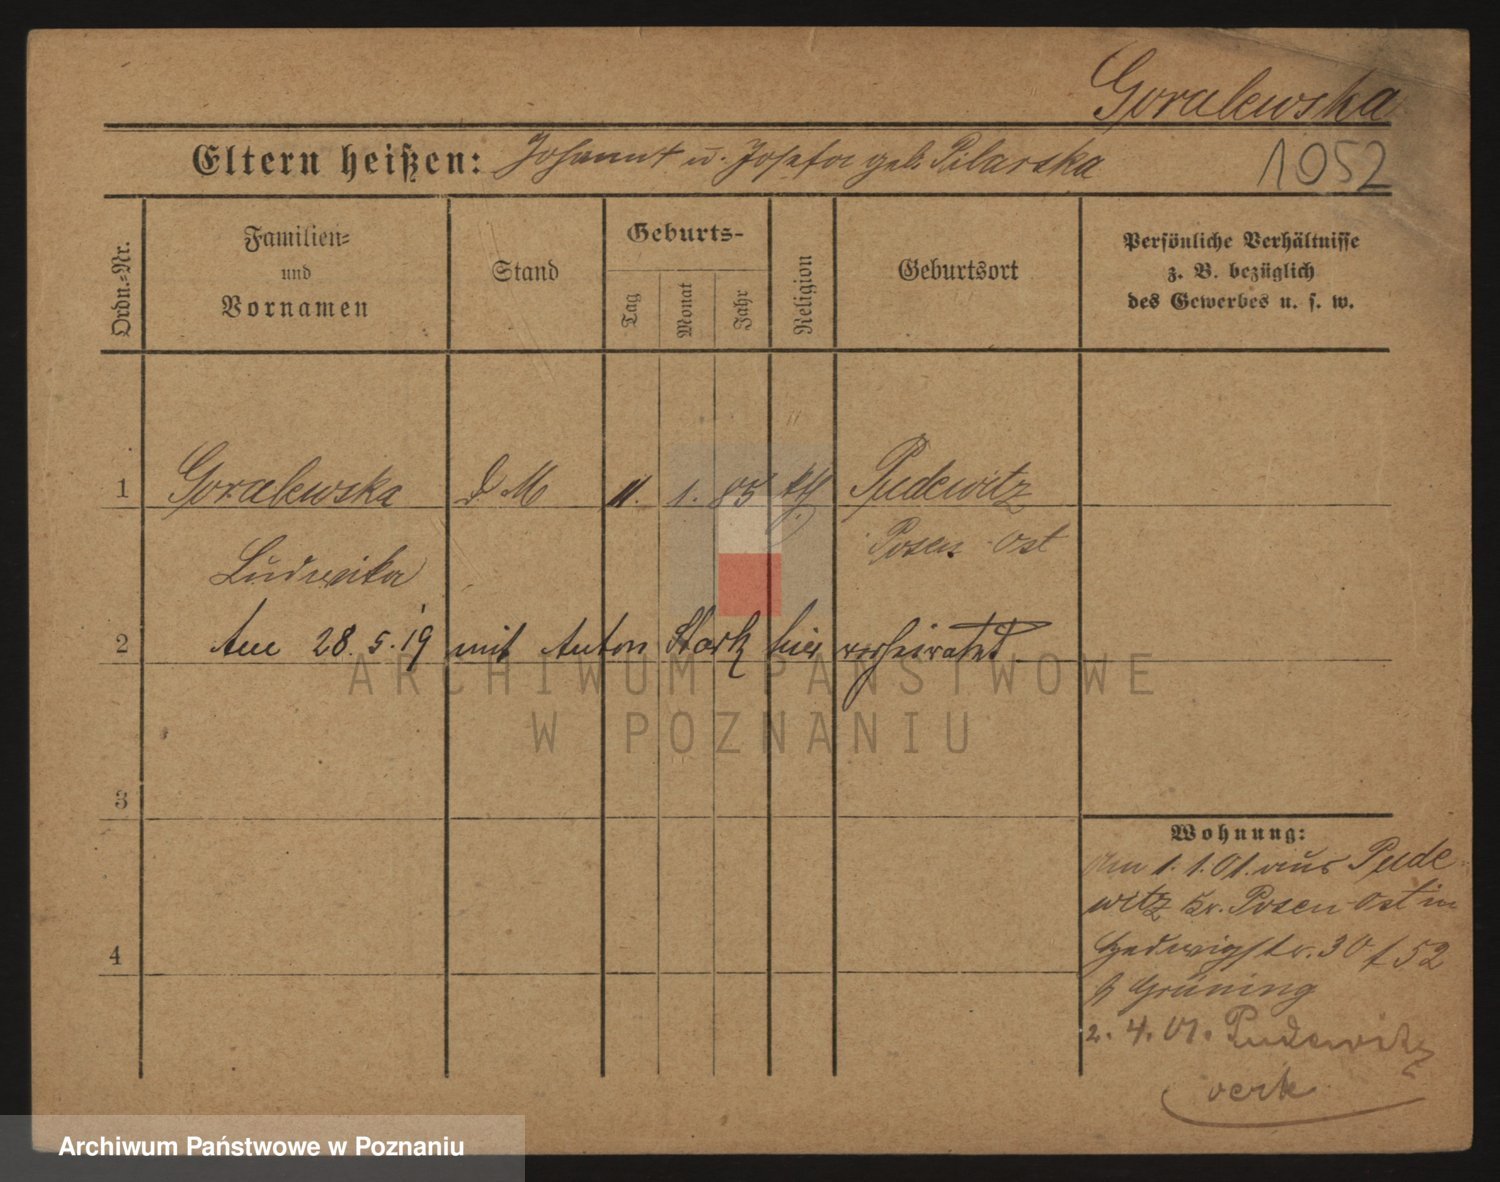 Goralewska
Eltern heißen: Johann u. Josefa geb. Pilarska
1052
Ordn.-Nr.
Familien-
und
Vornamen
Stand
Geburts-
Tag
Monat
Jahr
Religion
Geburtsort
Persönliche Verhältnisse
z. B. bezüglich
des Gewerbes u. s. w.
1 Goralewska D M 11. 1. 85 kth. Pudewitz
Posen-Ost
Ludwika
2 Am 28.5.19 mit Anton Stark hier verheiratet
ARCHIWUM PAŃSTWOWE
W POZNANIU
3
4
Wohnung:
Am 1.1.01. aus Pude-
witz Kr. Posen-Ost in
Hedwigstr. 30 f 52
b Grüning
2.4.01. Pudewitz
Archiwum Państwowe w Poznaniu